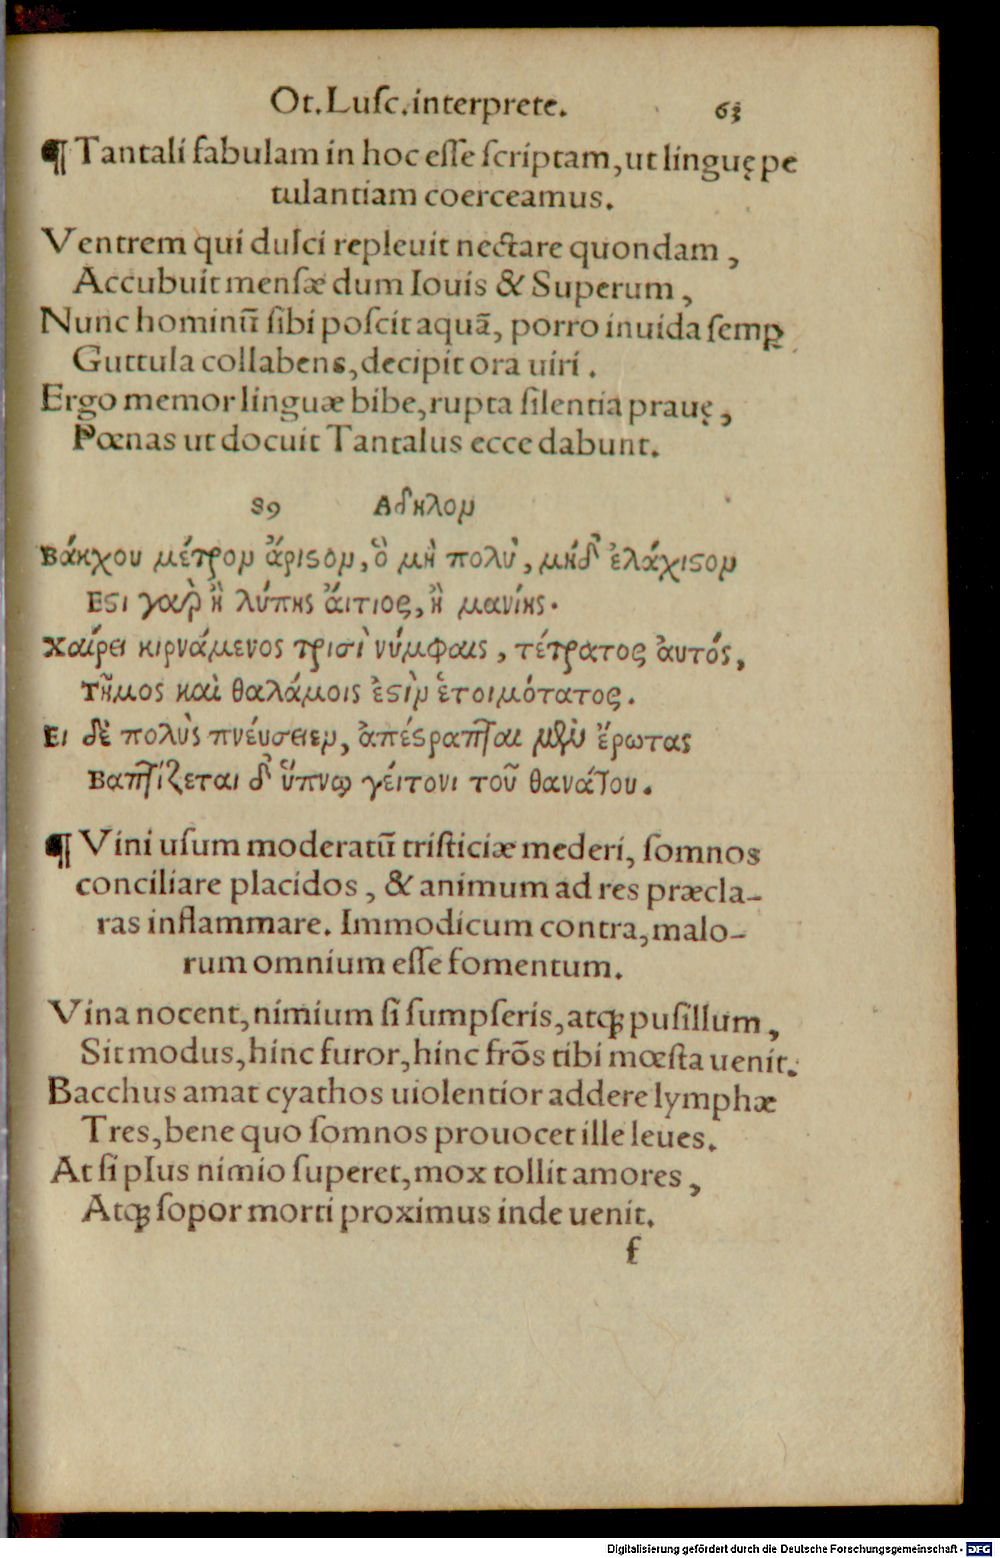 Ot. Luſc. interprete. 63
¶ Tantali fabulam in hoc eſſe ſcriptam, ut linguę pe
tulantiam coerceamus.
Ventrem qui dulci repleuit nectare quondam,
Accubuit menſæ dum Iouis & Superum,
Nunc hominū ſibi poſcit aquā, porro inuida ſemꝑ
Guttula collabens, decipit ora uiri.
Ergo memor linguæ bibe, rupta ſilentia prauę,
Pœnas ut docuit Tantalus ecce dabunt.
89 Αδηλον
Βάκχου μέτρον ἄριϛον, ὃ μὴ πολὺ, μήδ' ἐλάχιϛον
Εϛι γαρ ἢ λύπης ἄιτιος, ἢ μανίης.
Χαίρει κιρνάμενος τρισὶ νύμφαις, τέτρατος ἀυτός,
Τῆμος καὶ θαλάμοις ἐϛὶν ἑτοιμότατος.
Ει δὲ πολὺς πνέυσειεν, ἀπέϛραπται μὲν ἔρωτας
Βαπτίζεται δ' ὕπνῳ γέιτονι τοῦ θανάτου.
¶ Vini uſum moderatū triſticiæ mederi, ſomnos
conciliare placidos, & animum ad res præcla-
ras inflammare. Immodicum contra, malo-
rum omnium eſſe fomentum.
Vina nocent, nimium ſi ſumpſeris, atꝗ puſillum,
Sit modus, hinc furor, hinc frōs tibi mœſta uenit.
Bacchus amat cyathos uiolentior addere lymphæ
Tres, bene quo ſomnos prouocet ille leues.
At ſi plus nimio ſuperet, mox tollit amores,
Atꝗ ſopor morti proximus inde uenit.
f
Digitalisierung gefördert durch die Deutsche Forschungsgemeinschaft - DFG